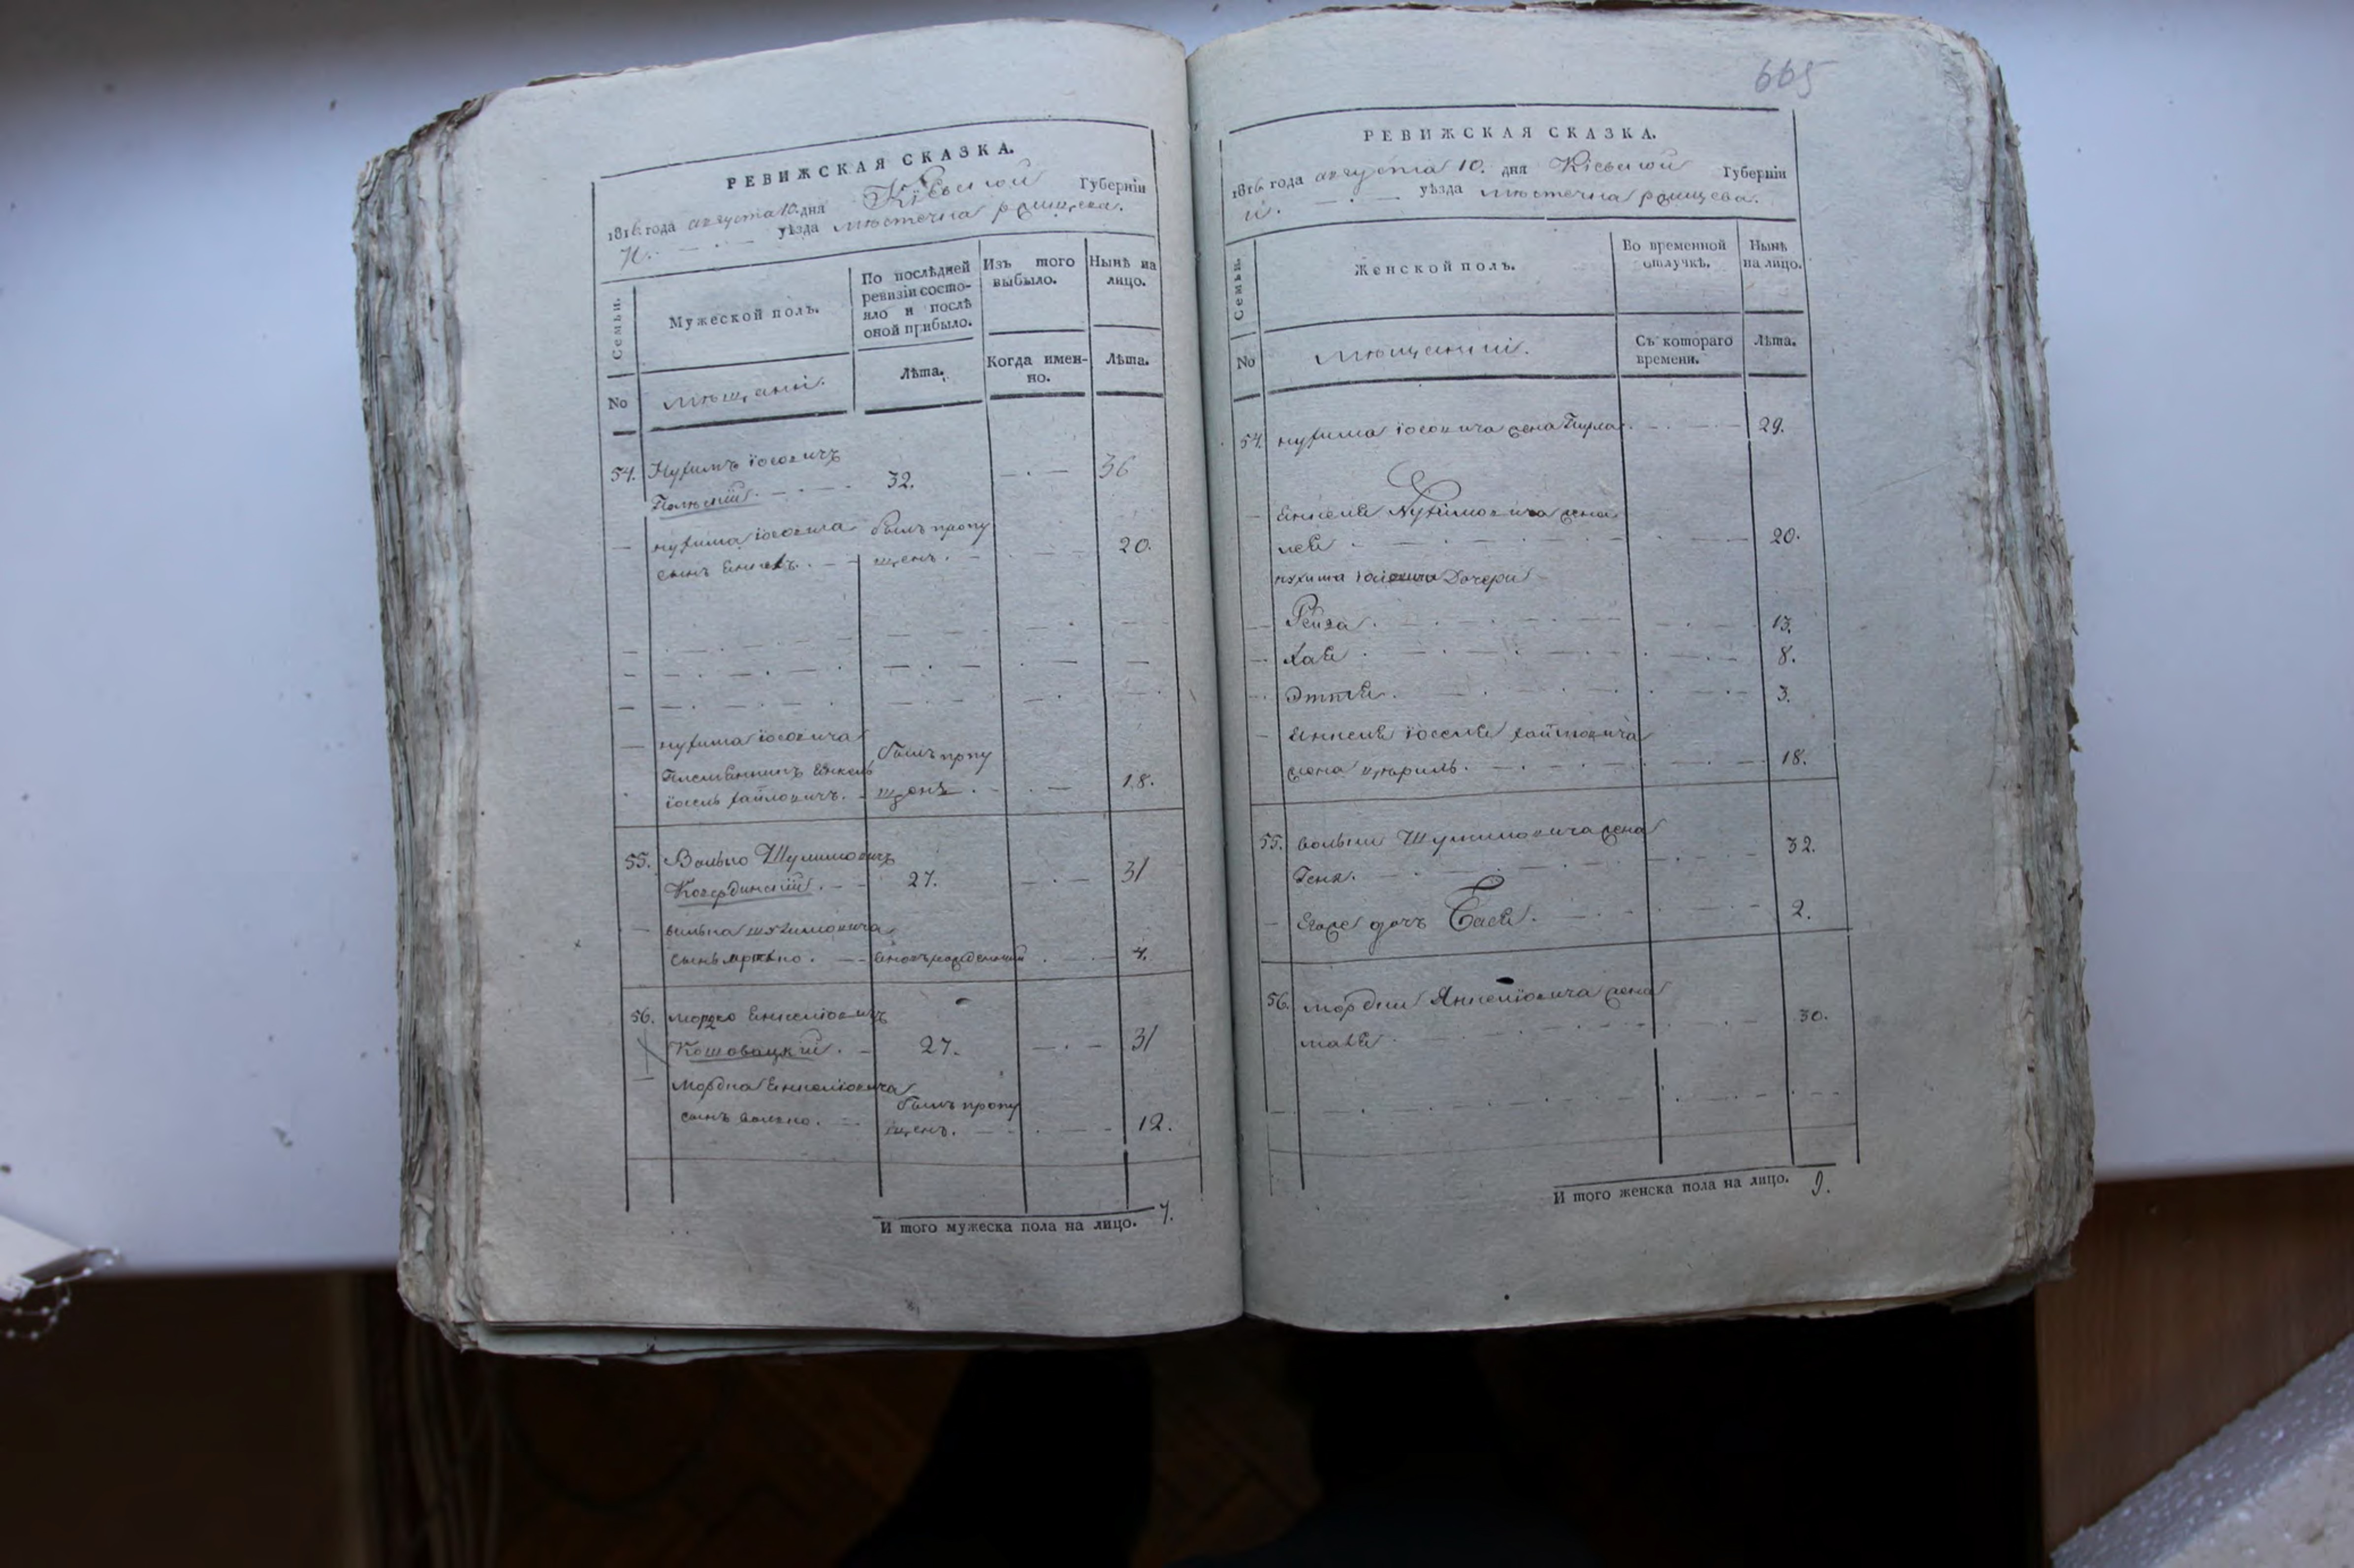 РЕВИЖСКАЯ СКАЗКА.
1816 года августа 10. дня Кіевской Губерніи
уѣзда мѣстечка
Семьи.
Мужеской полъ.
По послѣдней ревизіи состояло и послѣ оной прибыло.
Изъ того выбыло.
Нынѣ на лицо.
No
Мѣщане.
Лѣта.
Когда именно.
Лѣта.
54. Нухимъ Іосовичъ
32. 36
нухима іосовича былъ пропу
сынъ щенъ. 20.
нухима іосовича
племянникъ былъ пропу
іосель щенъ. 18.
55. Волько Шулимовичъ
27. 31
волька шулимовича
сынъ новорожденный 4.
56. Мордко Енкелювичъ
Кошовацкій. 27. 31
Мордка Енкелювича
сынъ волько. былъ пропу
щенъ. 12.
И того мужеска пола на лицо. 7.
665
РЕВИЖСКАЯ СКАЗКА.
1816 года августа 10. дня Кіевской Губерніи
уѣзда мѣстечка
Семьи.
Женской полъ.
Во временной отлучкѣ.
Нынѣ на лицо.
No
Мѣщанки.
Съ котораго времени.
Лѣта.
54. нухима іосовича жена 29.
Енкеля Нухимовича жена
лея 20.
нухима дочери
Рейза. 13.
хая 8.
Эттля. 3.
Енкеля іоселя
жена 18.
55. волька Шулимовича жена
Геня. 32.
Егоже дочь Бася. 2.
56. мордка Янкелювича жена
30.
И того женска пола на лицо. 9.